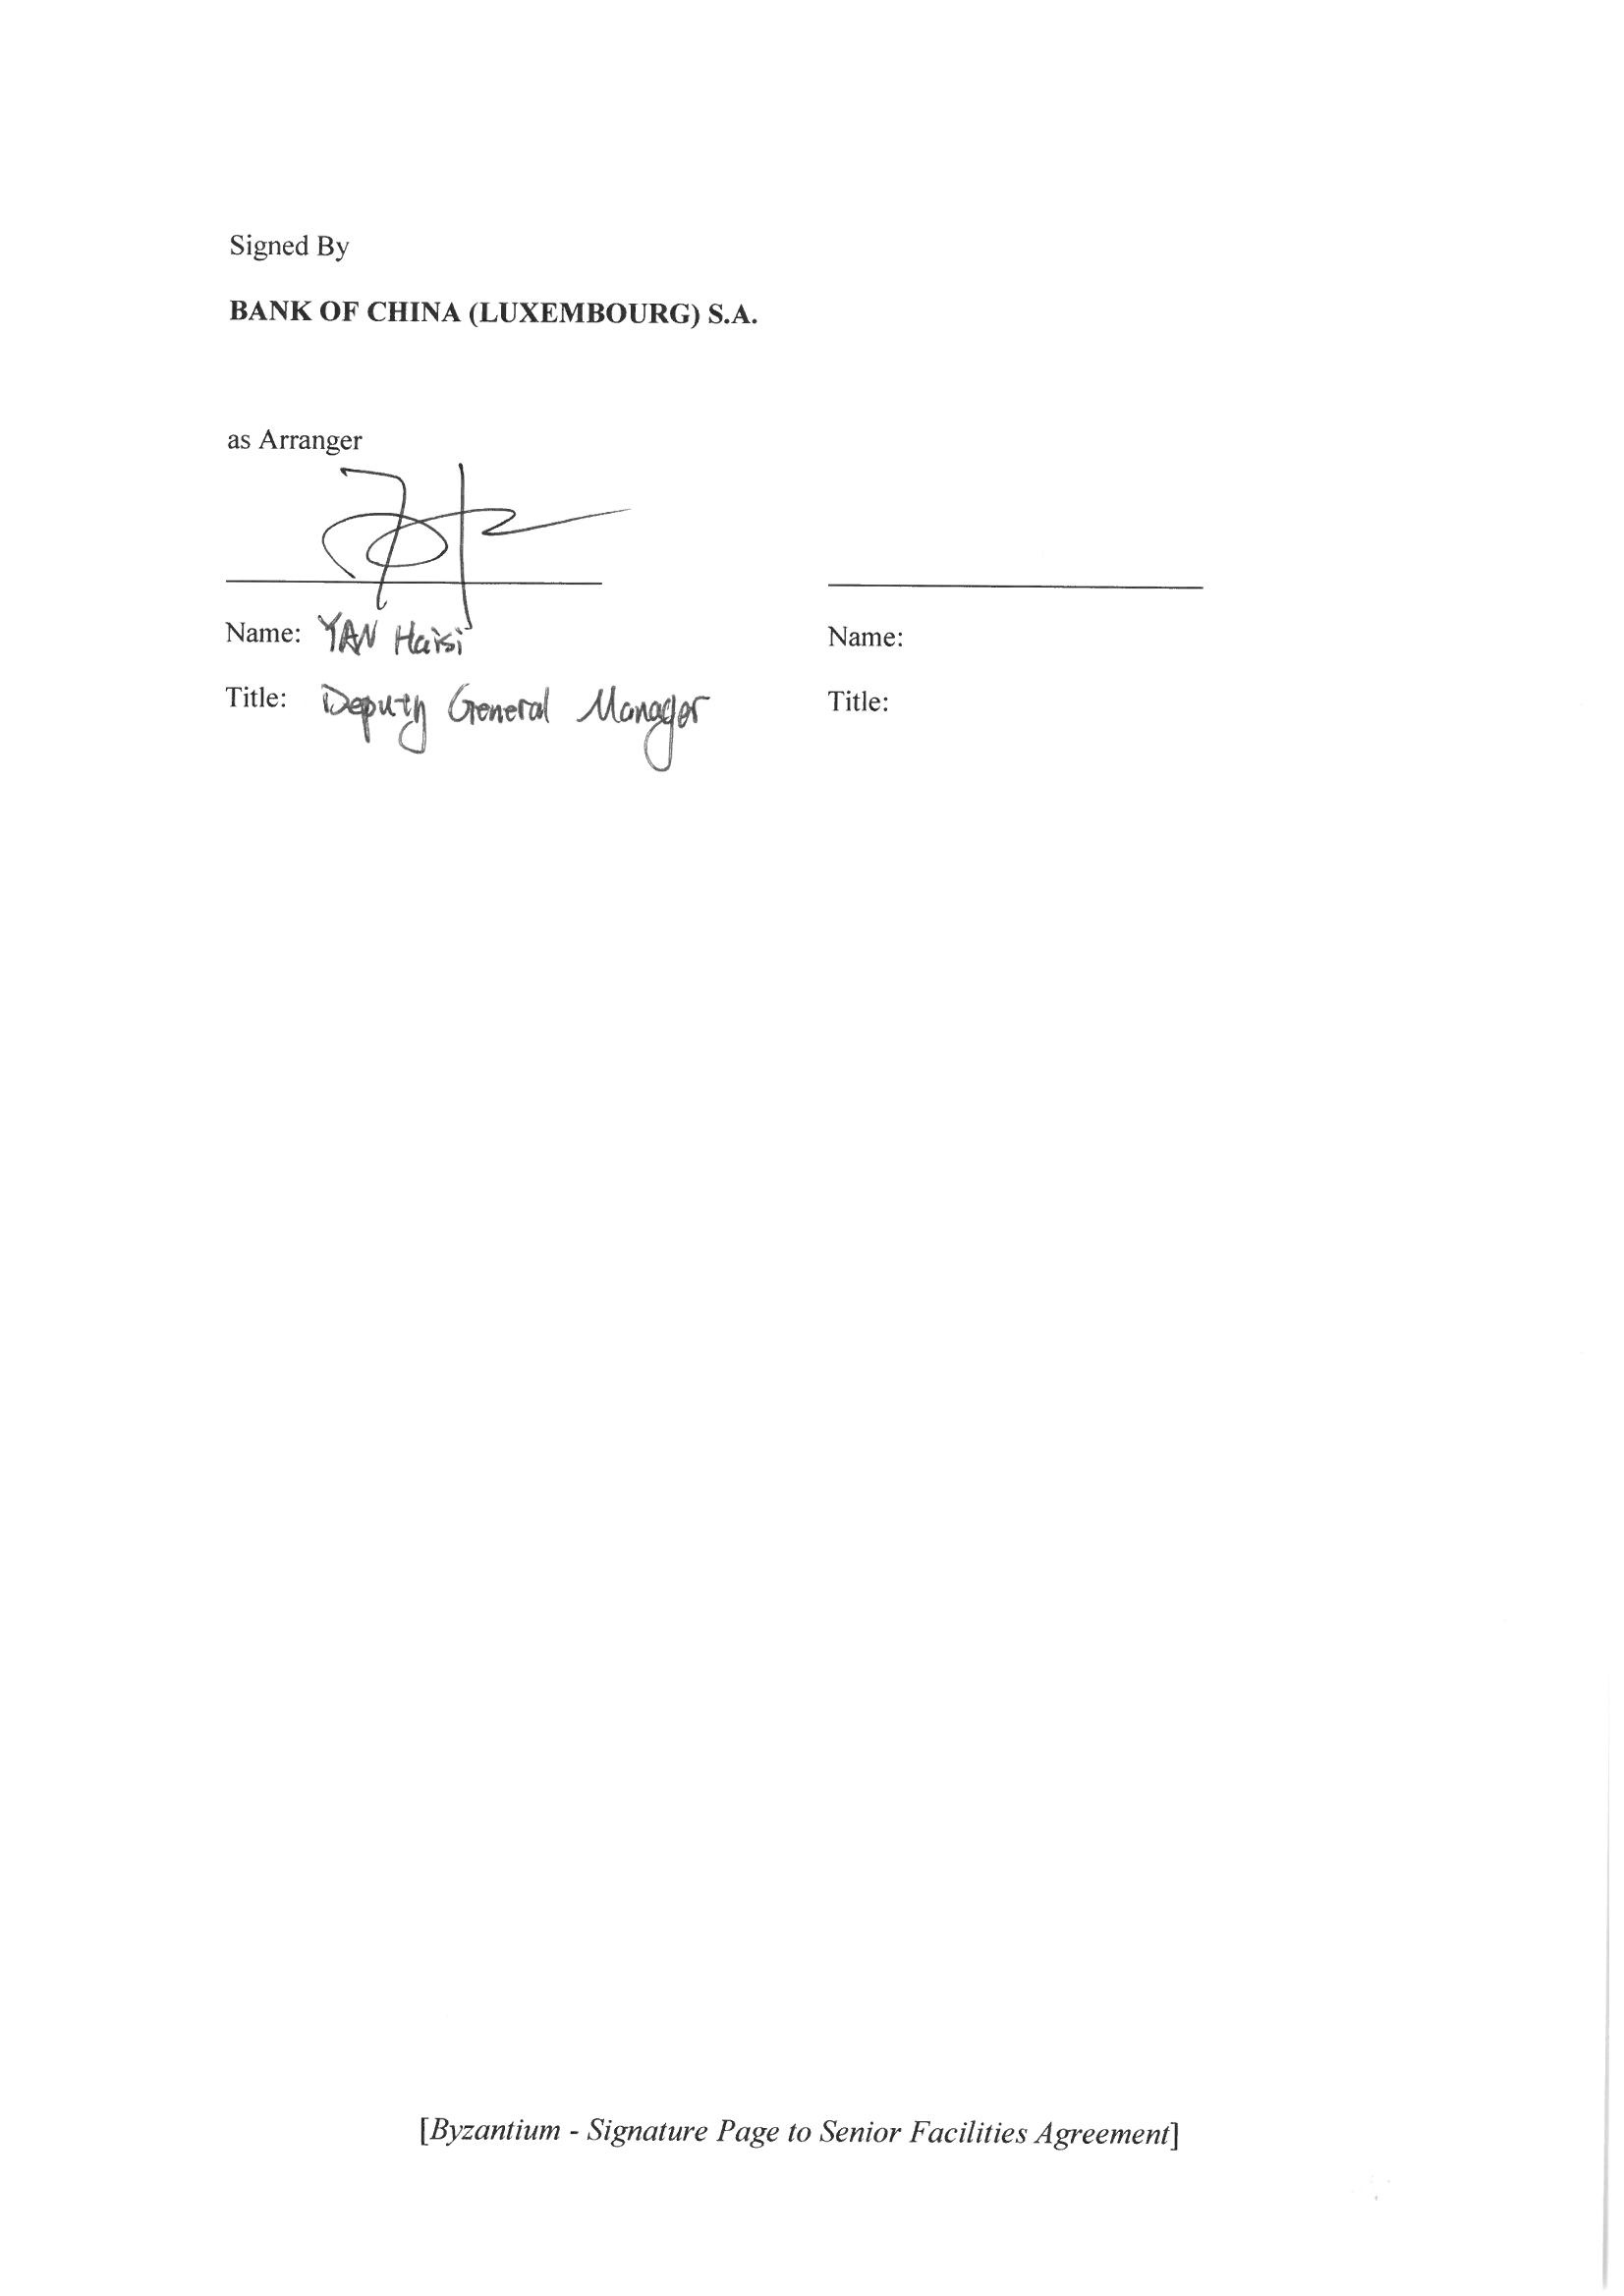 Signed By
BANK OF CHINA (LUXEMBOURG) S.A.
as Arranger
Name: YAN Haisi
Name:
Title: Deputy General Manager
Title:
[Byzantium - Signature Page to Senior Facilities Agreement]